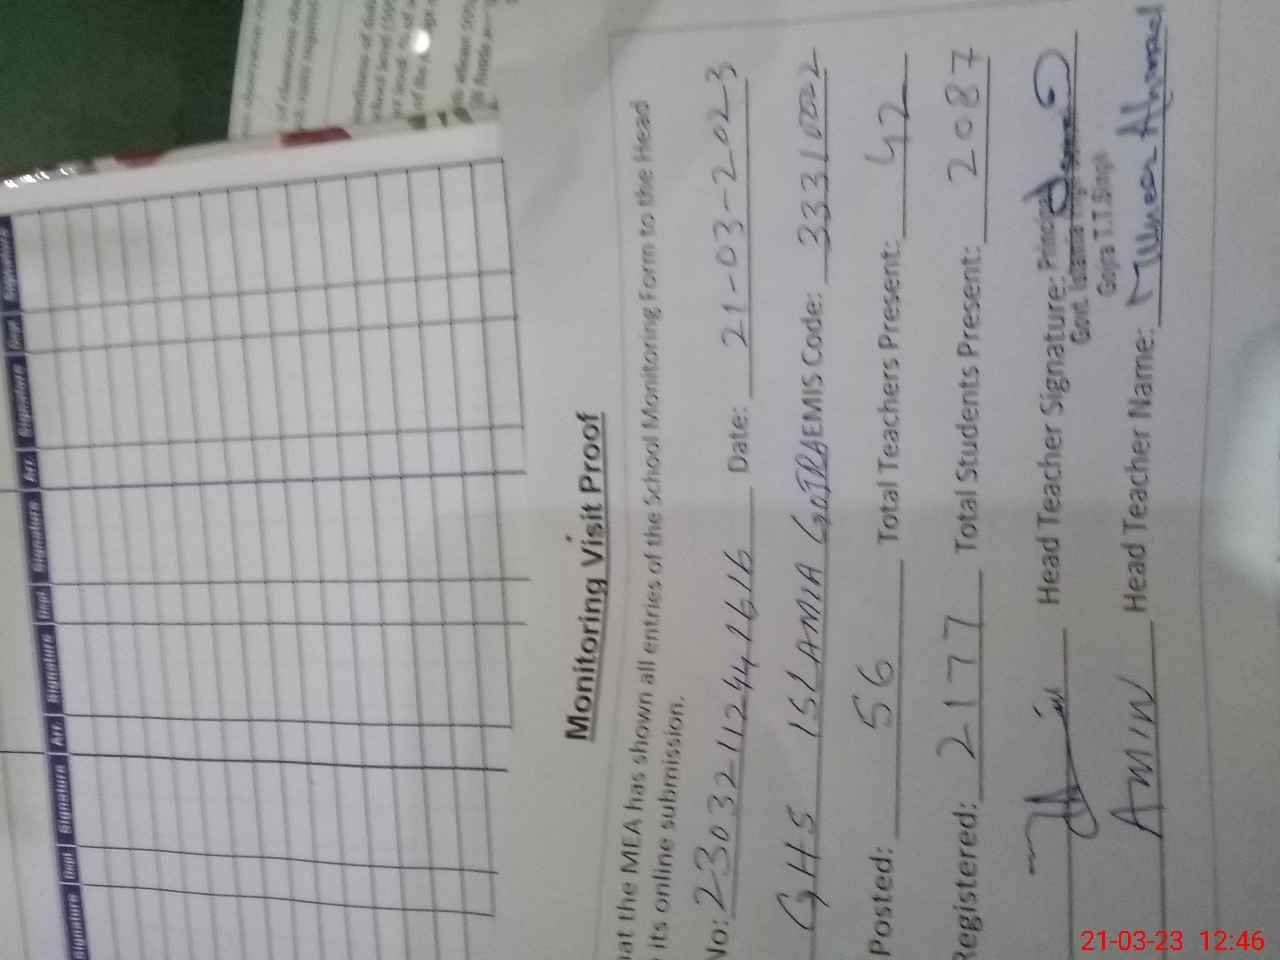 Signature Dept Signature Arr. Signature Dept Signature Arr. Signature Dept Signature
Monitoring Visit Proof
at the MEA has shown all entries of the School Monitoring Form to the Head
its online submission.
No: 23032112441616 Date: 21-03-2023
GHS ISLAMIA GOJRA EMIS Code: 33310022
Posted: 56 Total Teachers Present: 42
Registered: 2177 Total Students Present: 2087
Head Teacher Signature: Principal
Govt. Islamia High
Gojra T.T.Singh
AMIN Head Teacher Name: Muneer Ahmad
21-03-23 12:46